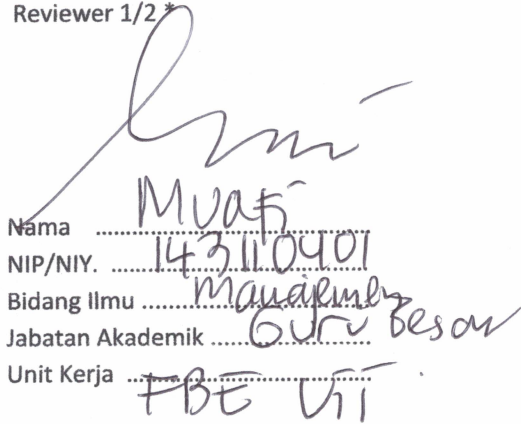 Reviewer 1/2 *
Nama ........ Muafi
NIP/NIY. ........ 143110401
Bidang Ilmu ........ Manajemen
Jabatan Akademik ........ Guru Besar
Unit Kerja ........ FBE UII